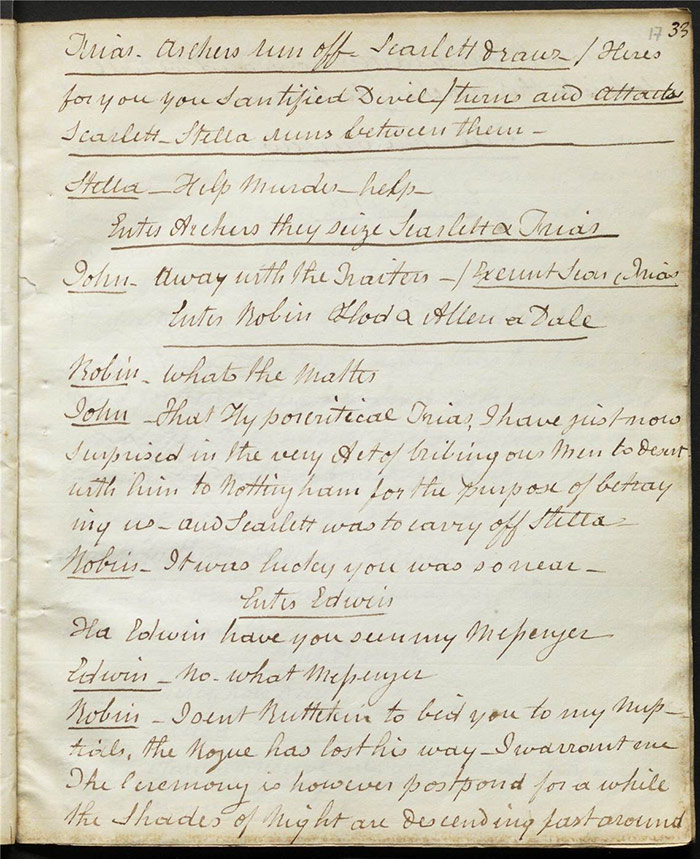 17 33
Friar - Archers run off - Scarlett draws / Heres
for you you Santified Divel / turns and Attacks
Scarlett - Stella runs between them -
Stella - Help Murder - help -
Enter Archers they seize Scarlett & Friar
John - Away with the Traitors - / Exeunt Scar & Friar
Enter Robin Hod & Allen a Dale
Robin - what the Matter
John - That Hypocritical Friar, I have just now
surprised in the very Act of bribing our Men to desert
with him to Nottingham for the purpose of betray
ing us - and Scarlett was to carry off Stella
Robin - It was lucky you was so near -
Enter Edwin
Ha Edwin have you seen my Messenger
Edwin - No - what Messenger
Robin - I sent to bid you to my Nup-
tials, the Rogue has lost his way - I warrant me
The Ceremony is however postpond for a while
the Shades of Night are descending fast around